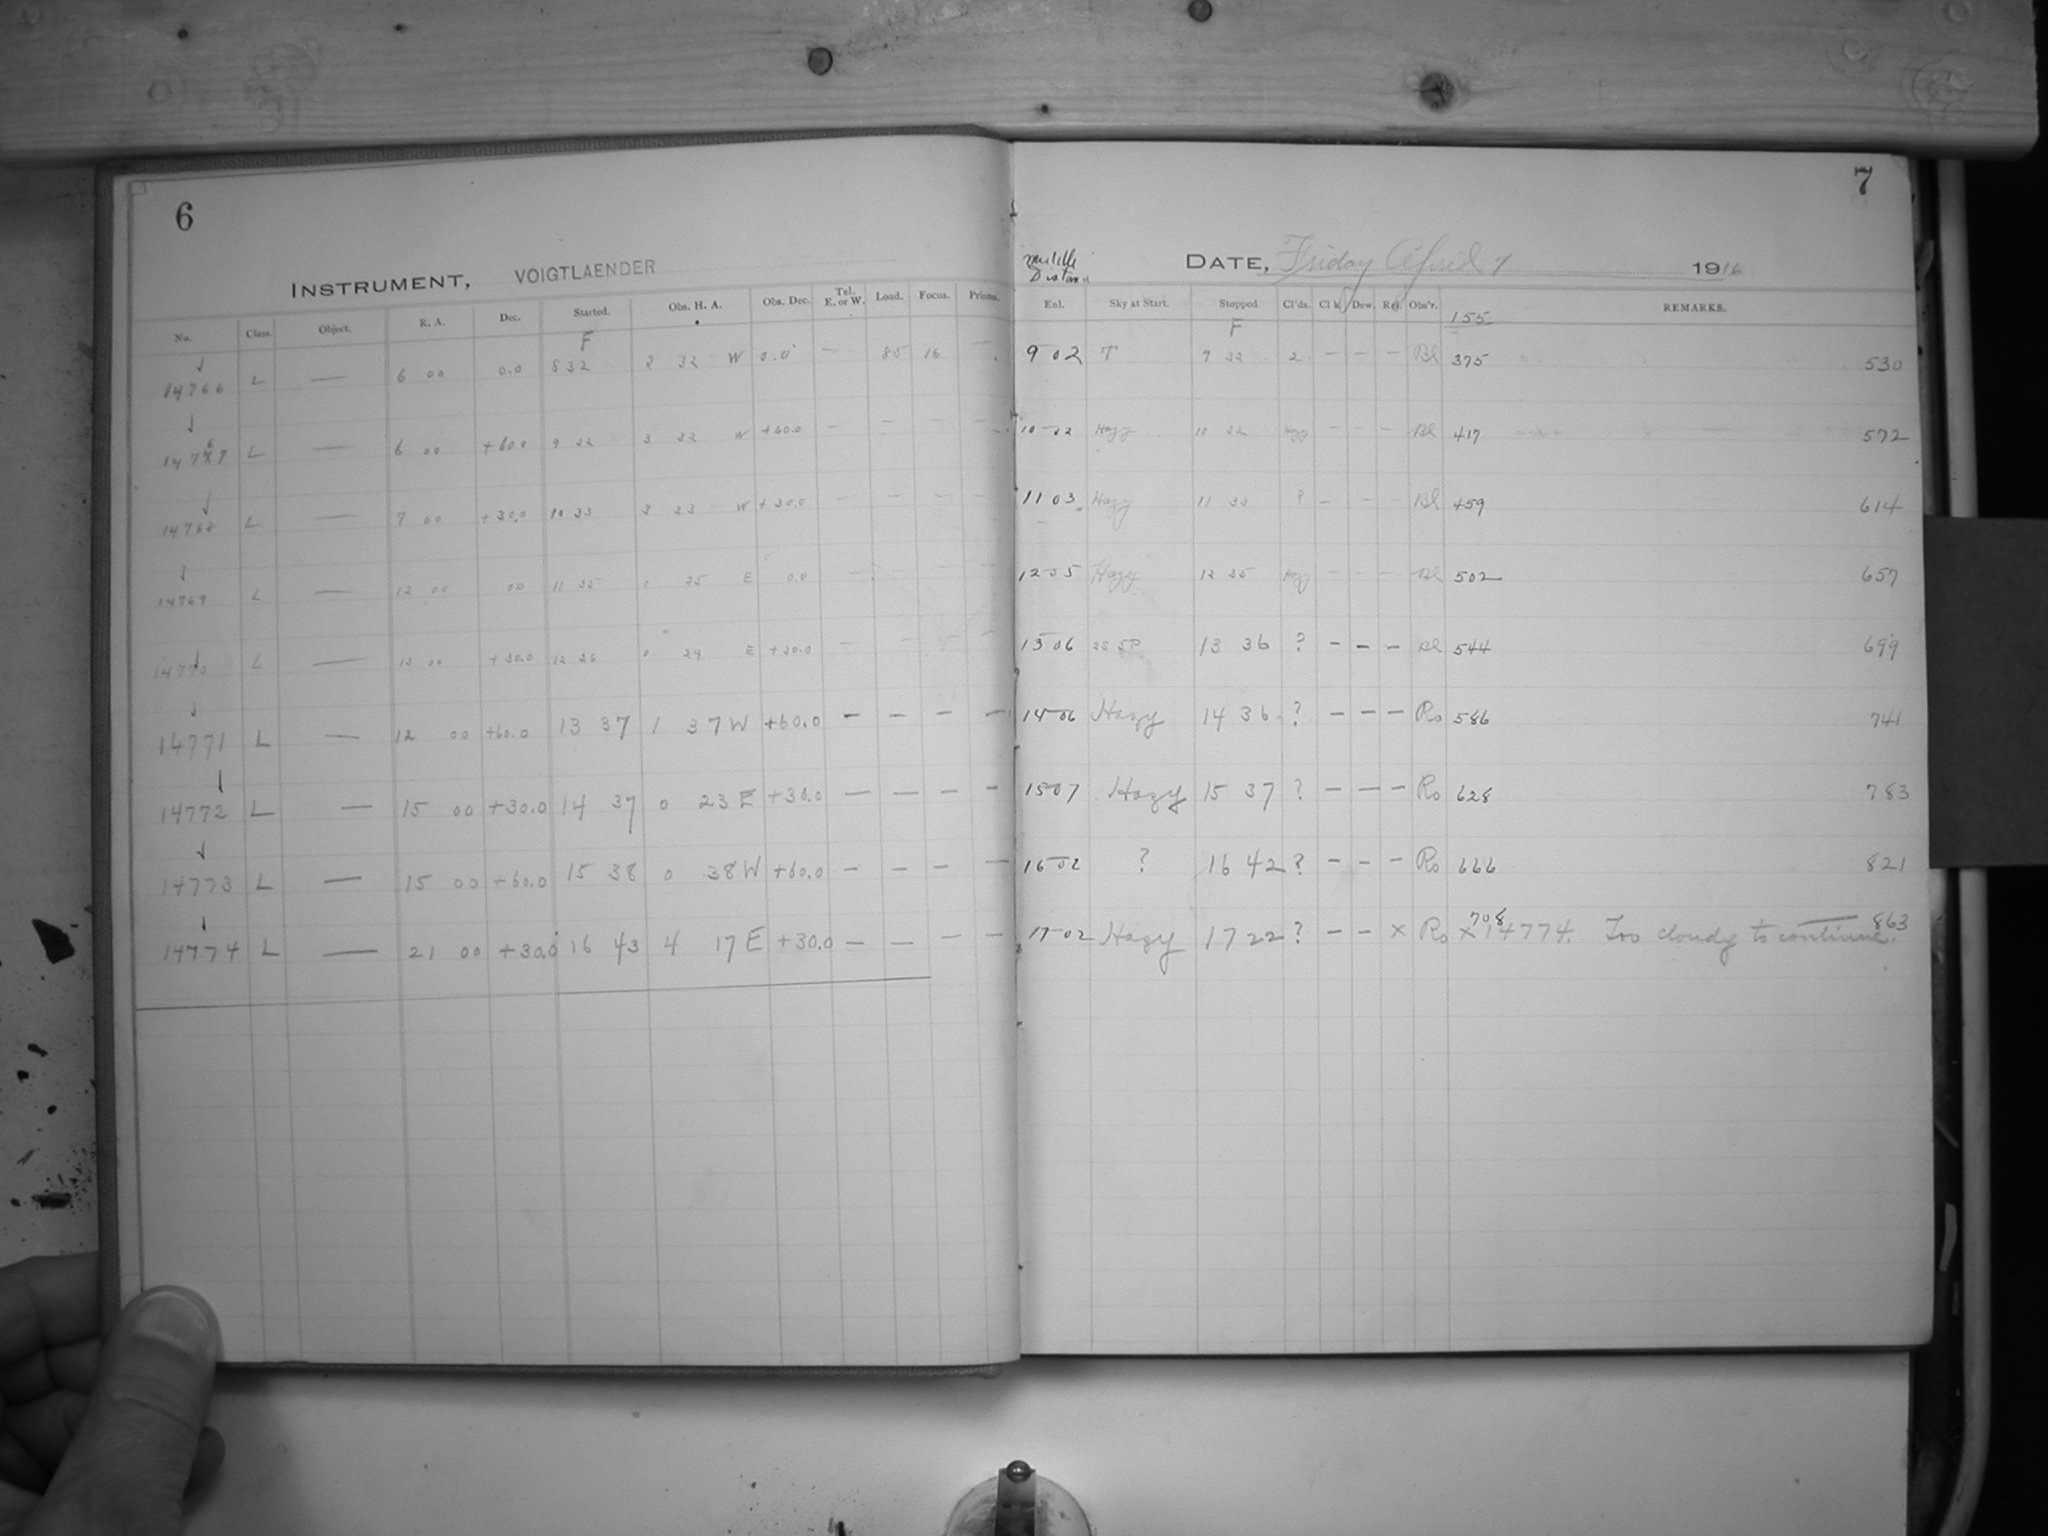 6
INSTRUMENT, VOIGTLAENDER
No. Class. Object. R. A. Dec. Started. Obs. H. A. Obs. Dec. Tel. E. or W. Load. Focus. Prisms.
F
14766 L — 6 00 0.0 8 32 2 32 W 0.0 — 80 16 —
14767 L — 6 00 +60.0 9 32 3 32 W +60.0 — — — —
14768 L — 7 00 +30.0 10 33 3 33 W +30.0 — — — —
14769 L — 12 00 00 11 35 0 25 E 0.0 — — — —
14770 L — 13 00 +30.0 12 36 0 24 E +30.0 — — — —
14771 L — 12 00 +60.0 13 37 1 37 W +60.0 — — — —
14772 L — 15 00 +30.0 14 37 0 23 E +30.0 — — — —
14773 L — 15 00 +60.0 15 38 0 38 W +60.0 — — — —
14774 L — 21 00 +30.0 16 43 4 17 E +30.0 — — — —
7
DATE, Friday April 7 1916
Enl. Sky at Start. Stopped Cl'ds. Cl'k. Dew. Rej. Obs'r. REMARKS.
F 155
9 02 T 9 32 2 — — — Bl 375 530
10 02 Hazy 10 32 Hazy — — — Bl 417 572
11 03 Hazy 11 33 ? — — — Bl 459 614
12 05 Hazy 12 35 Hazy — — — Bl 502 657
13 06 13 36 ? — — — Bl 544 699
14 06 Hazy 14 36 ? — — — Ro 586 741
15 07 Hazy 15 37 ? — — — Ro 628 783
16 02 ? 16 42 ? — — — Ro 666 821
17 02 Hazy 17 22 ? — — x Ro 708 x 14774. Too cloudy to continue. 863